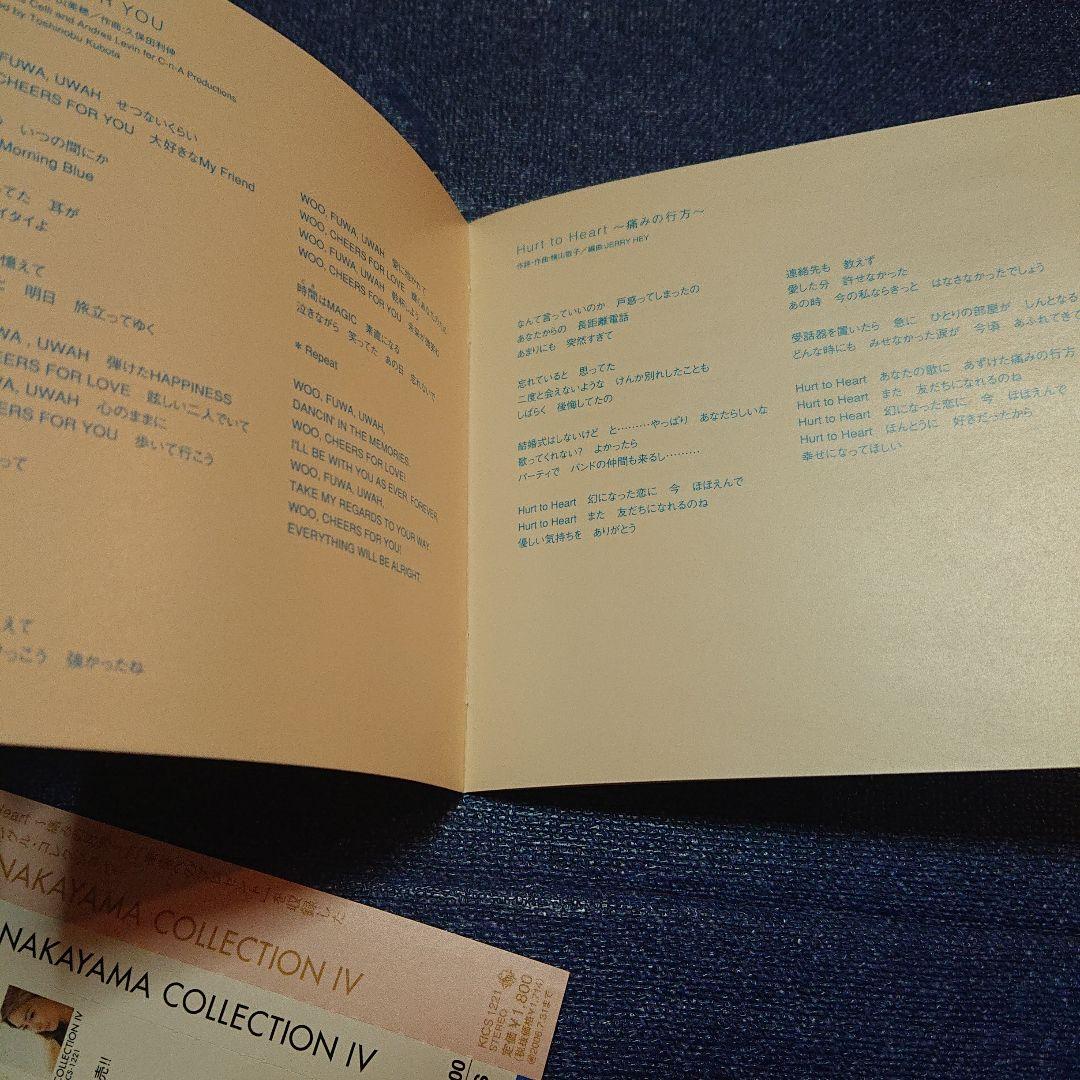 R YOU
作曲・久保田利伸
Celli and Andres Levin for C-n-A Productions
by Toshinobu Kubota
FUWA, UWAH せつないくらい
CHEERS FOR YOU 大好きなMy Friend
いつの間にか
Morning Blue
てた 耳が
イタイよ
憶えて
明日 旅立ってゆく
WA, UWAH 弾けたHAPPINESS
EERS FOR LOVE 眩しい二人でいて
WA, UWAH 心のままに
ERS FOR YOU 歩いて行こう
って
えて
けっこう 強かったね
WOO, FUWA, UWAH
WOO, CHEERS FOR LOVE
WOO, FUWA, UWAH
WOO, CHEERS FOR YOU
時間はMAGIC 素直になる
泣きながら 笑ってた あの日 忘れないで
* Repeat
WOO, FUWA, UWAH,
DANCIN' IN THE MEMORIES.
WOO, CHEERS FOR LOVE!
I'LL BE WITH YOU AS EVER, FOREVER,
WOO, FUWA, UWAH,
TAKE MY REGARDS TO YOUR WAY.
WOO, CHEERS FOR YOU!
EVERYTHING WILL BE ALRIGHT.
Hurt to Heart 〜痛みの行方〜
作詞・作曲:横山敬子/編曲:JERRY HEY
なんて言っていいのか 戸惑ってしまったの
あなたからの 長距離電話
あまりにも 突然すぎて
忘れていると 思ってた
二度と会えないような けんか別れしたことも
しばらく 後悔してたの
結婚式はしないけど と………やっぱり あなたらしいな
歌ってくれない? よかったら
パーティで バンドの仲間も来るし………
Hurt to Heart 幻になった恋に 今 ほほえんで
Hurt to Heart また 友だちになれるのね
優しい気持ちを ありがとう
連絡先も 教えず
愛した分 許せなかった
あの時 今の私ならきっと はなさなかったでしょう
受話器を置いたら 急に ひとりの部屋が しんとなる
どんな時にも みせなかった涙が 今頃 あふれてきて
Hurt to Heart あなたの歌に あずけた痛みの行方
Hurt to Heart また 友だちになれるのね
Hurt to Heart 幻になった恋に 今 ほほえんで
Hurt to Heart ほんとうに 好きだったから
幸せになってほしい
NAKAYAMA COLLECTION IV
KICS 1221
STEREO
定価¥1,800
(税抜価格¥1,714)
NAKAYAMA COLLECTION IV
COLLECTION IV
CS-1221
売!!
00